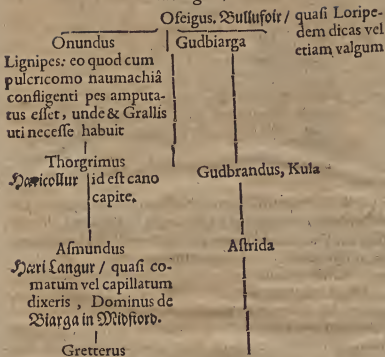 Ofeigus. Bullufoir / quaſi Loripe-
dem dicas vel
etiam valgum
Onundus
Lignipes: eo quod cum
pulcricomo naumachiâ
confligenti pes amputa-
tus eſſet, unde & Grallis
uti neceſſe habuit
Gudbiarga
Thorgrimus
Hœricollur id eſt cano
capite.
Gudbrandus, Kula
Aſmundus
Hœri Langur / quaſi co-
matum vel capillatum
dixeris, Dominus de
Biarga in Midfiord.
Aſtrida
Gretterus